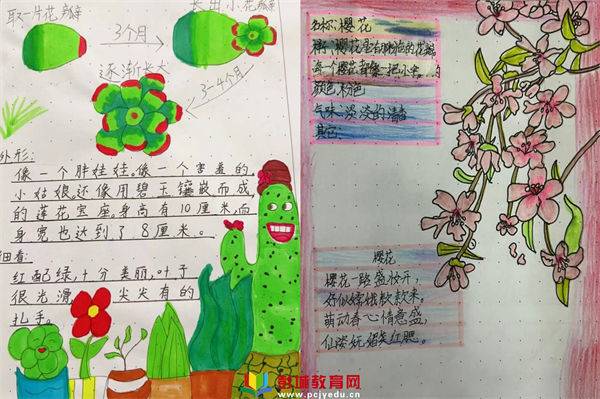 取一片花瓣
3个月
长出小花瓣
逐渐长大
3~4个月
外形:
像一个胖娃娃。像一个害羞的
小姑娘。还像用碧玉镶嵌而成
的莲花宝座。身高有10厘米,而
身宽也达到了8厘米。
细看:
红配绿,十分美丽,叶子
很光滑,
尖尖有的
扎手。
名称:樱花
颜色:粉色
气味:淡淡的清香
其它:
樱花
樱花一路盛妆开,
仿似嫦娥款款来。
萌动春心情意盛,
仙袂妩媚笑红腮。
彭城教育网
www.pcjyedu.cn